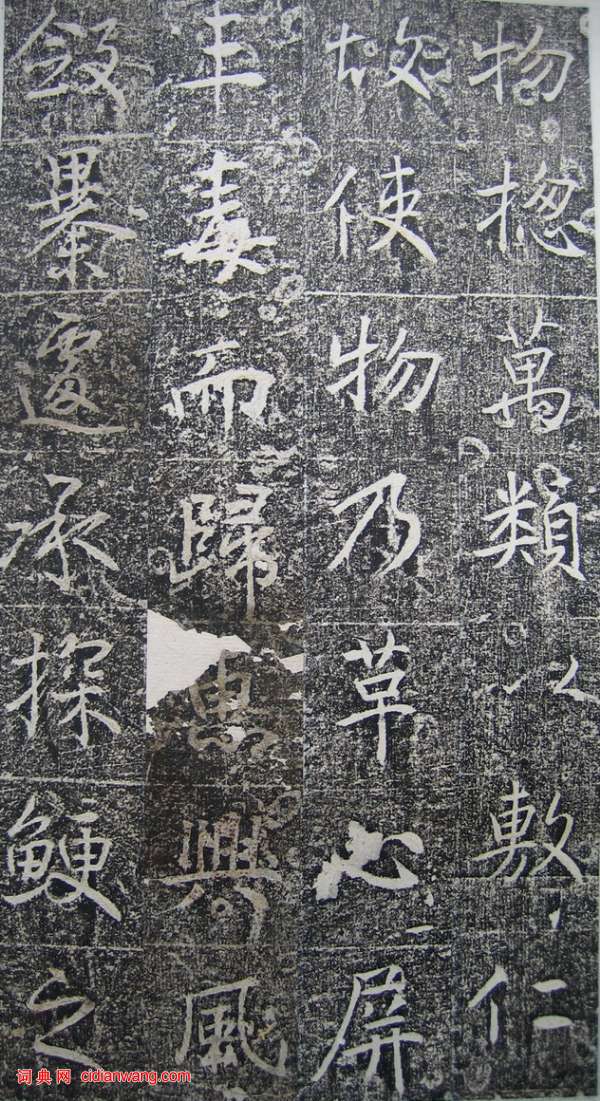 物揔萬類以敷仁
故使物乃革心屏
毒而歸興風
斂暴遽承探鯁之
词典网 cidianwang.com